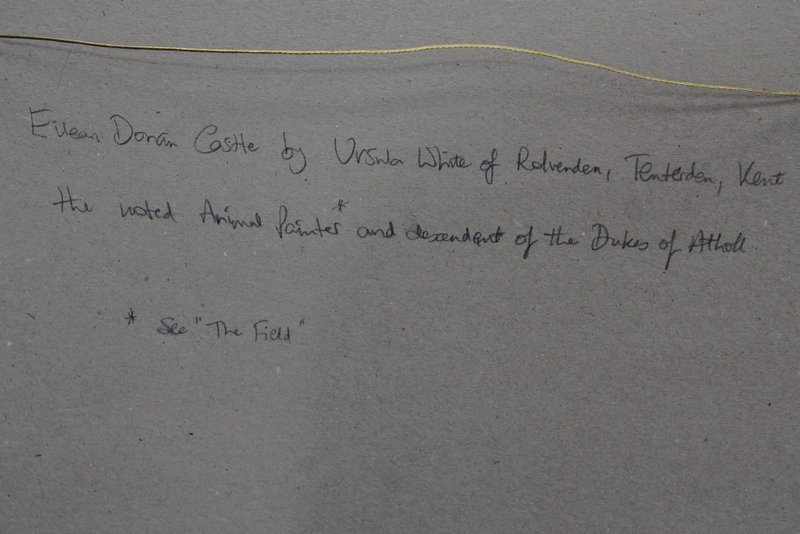 Eilean Doran Castle by Ursula White of Rolvenden, Tenterden, Kent
the noted Animal Painter* and descendent of the Dukes of Atholl
* See "The Field"